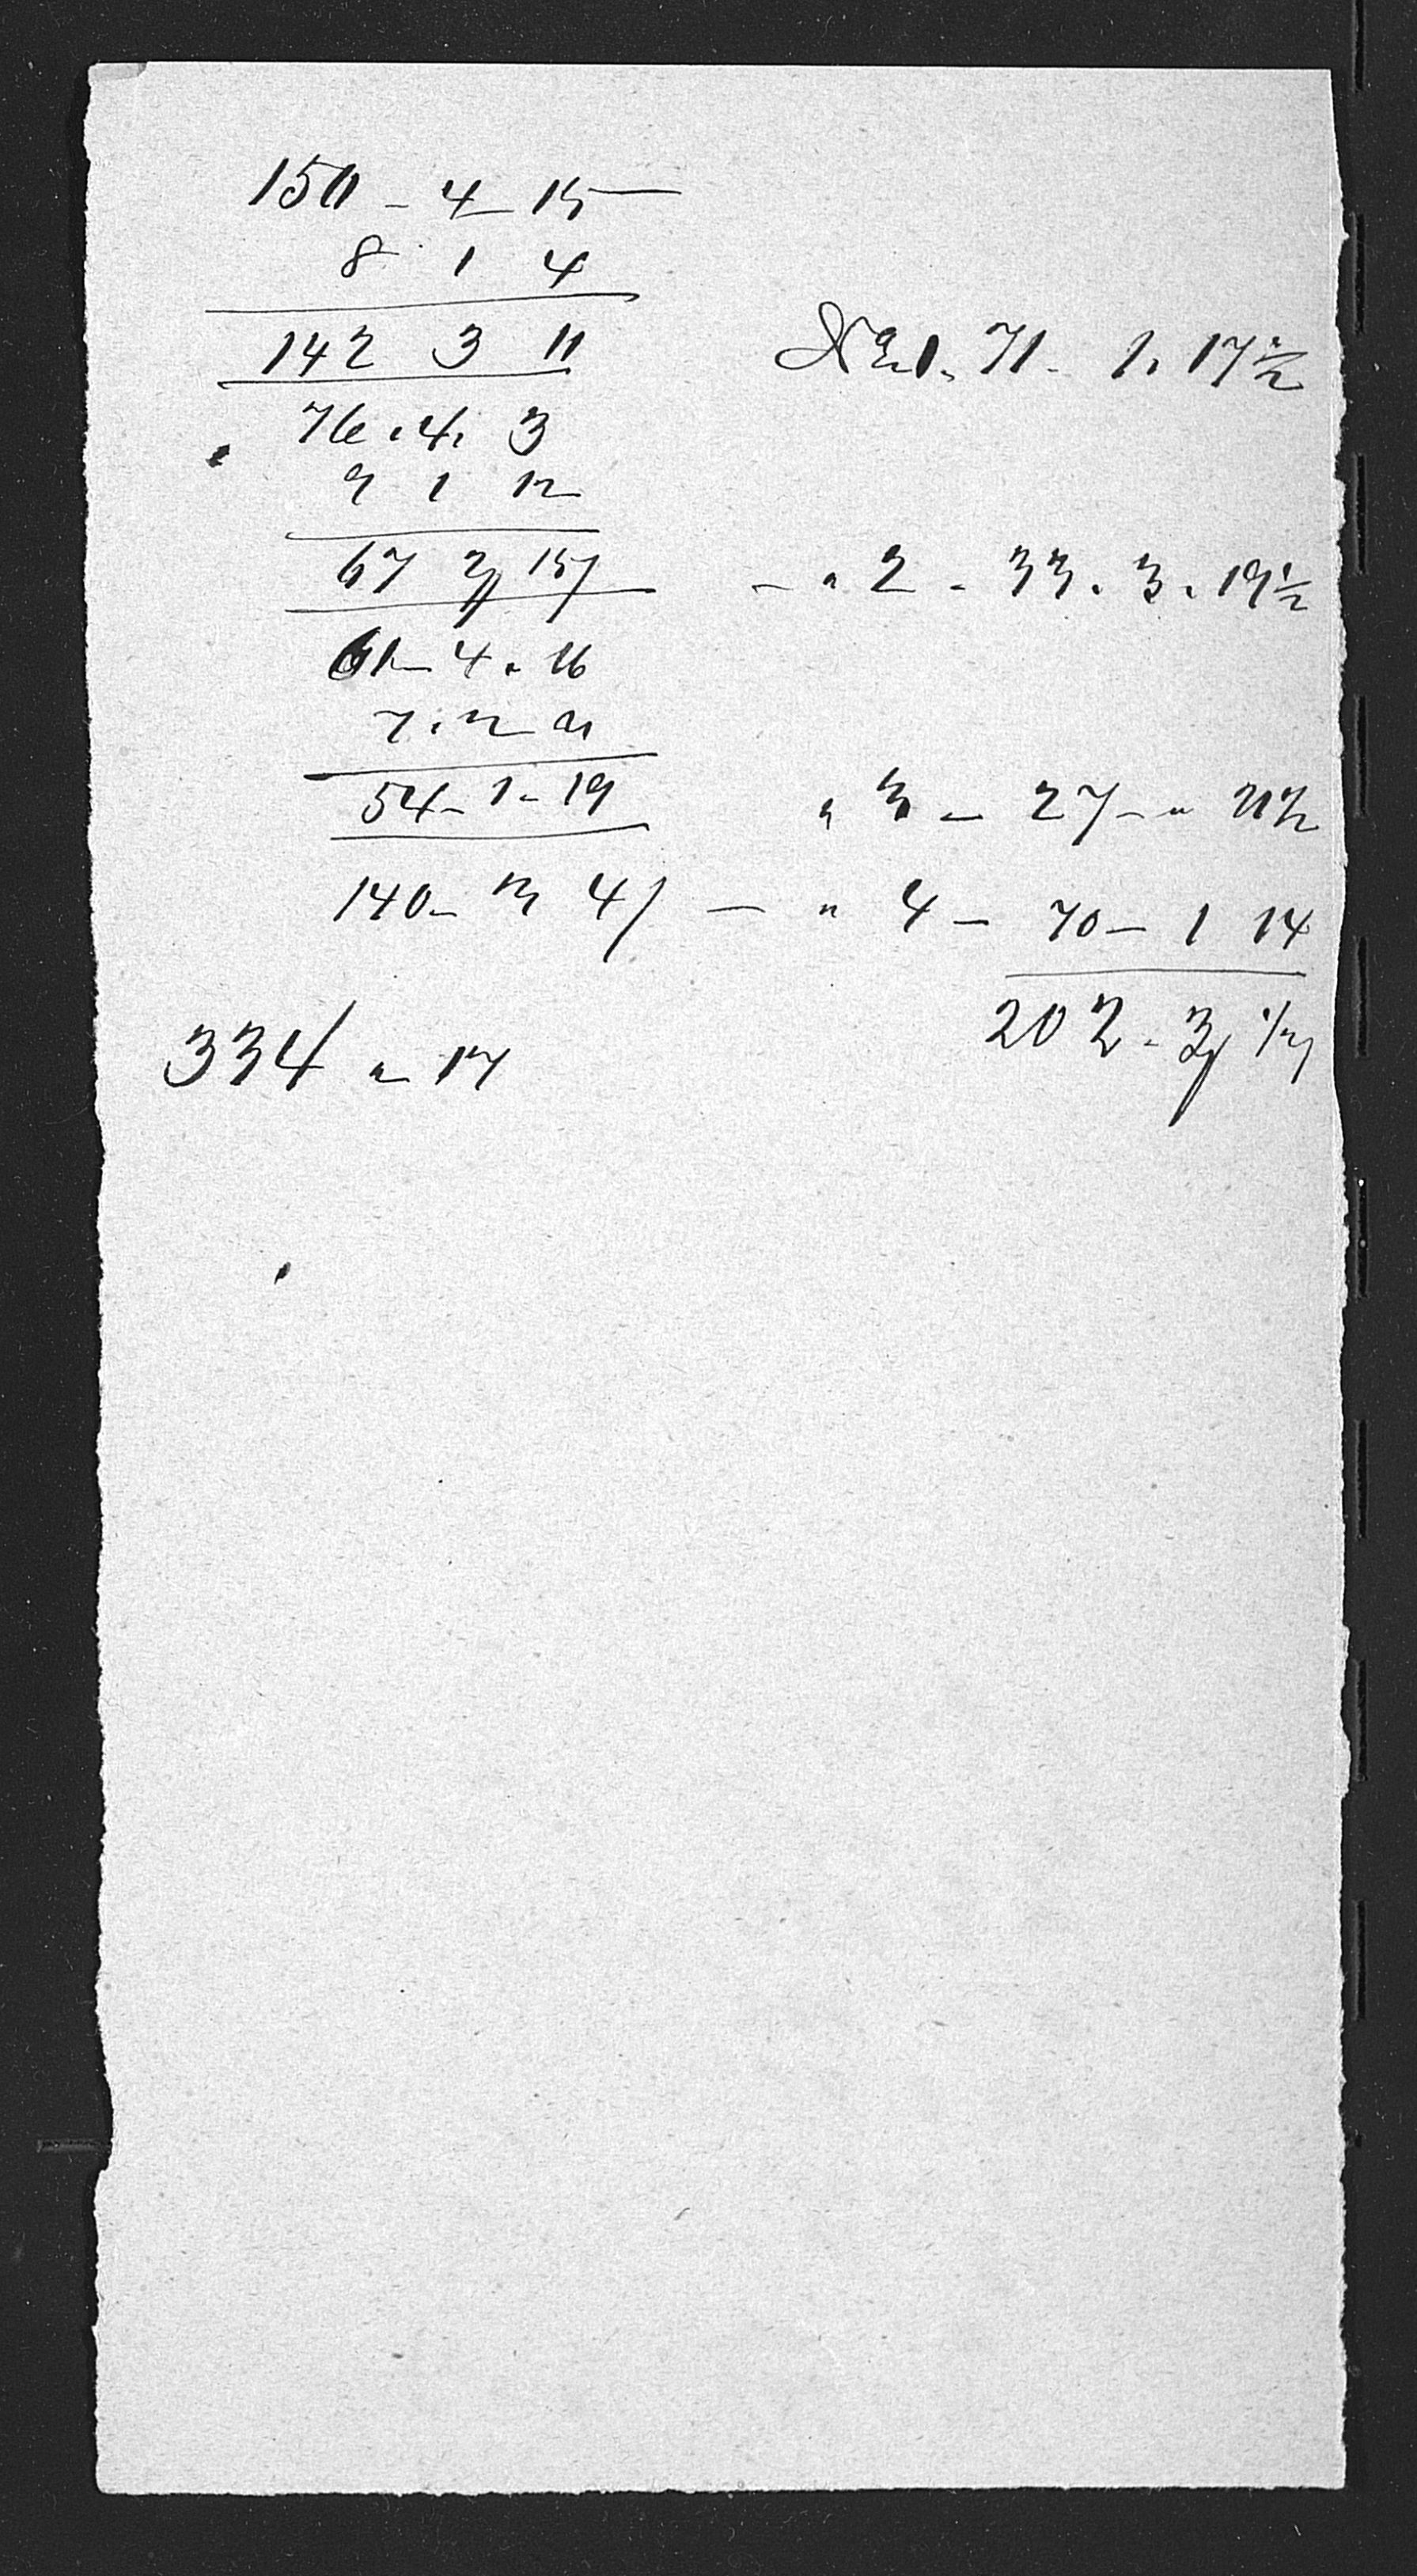 150 - 4 - 15 —
8 1 4
142 3 11 No 1. 71 - 1. 17½
76. 4. 3
9 1 12
67 2 15 — " 2 - 33. 3. 19½
61 - 4. 16
7. 2 21
54 - 1 - 19 " 3 - 27 - " 21½
140 - 3 4 — " 4 - 70 - 1 14
202 - 3 ½
334 " 17